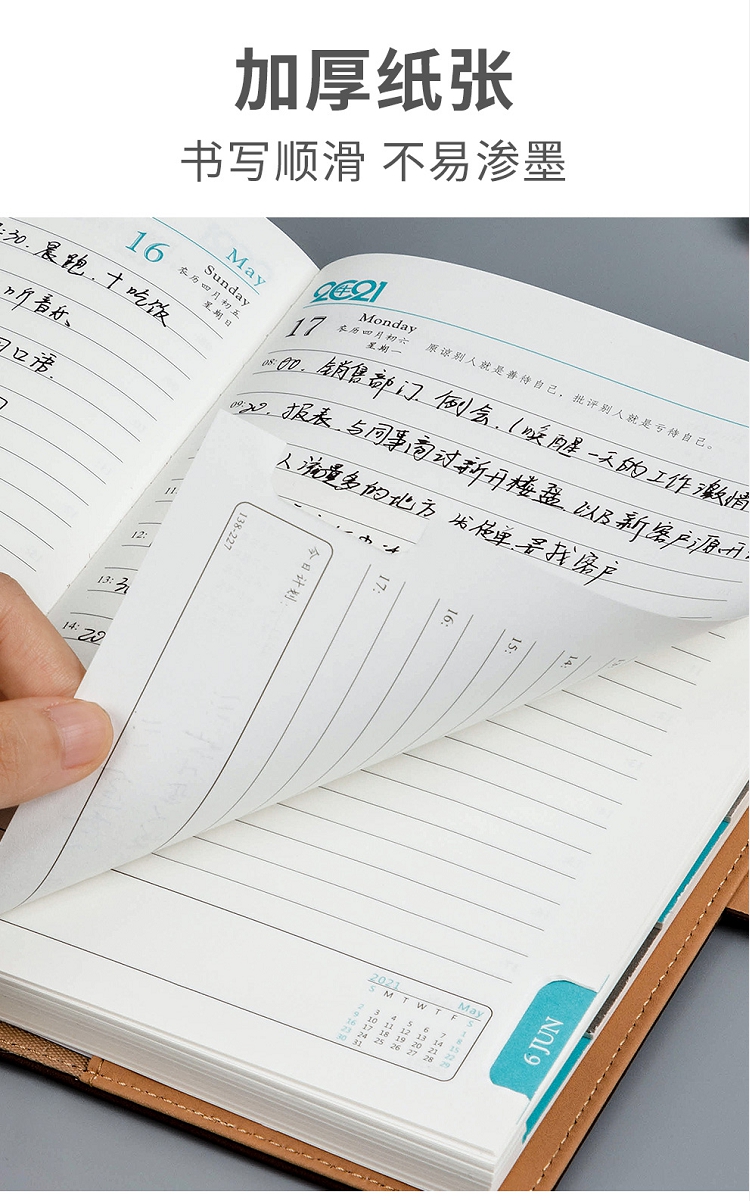 加厚纸张
书写顺滑 不易渗墨
:30. 晨跑. 十吃饭
16
May
Sunday
农历四月初五
星期日
听音乐
口语.
11
12:
13: 30
14: 20
2021
17
Monday
农历四月初六
星期一
原谅别人就是善待自己，批评别人就是亏待自己。
08:00. 销售部门 例会. (唤醒一天的工作激情
09:30. 报表. 与同事商讨新开楼盘 以及新客户源开
人流量多的地方 发传单. 寻找客户
138-227
今日计划:
17:
16:
15:
14:
2021 May
S M T W T F S
1
2 3 4 5 6 7 8
9 10 11 12 13 14 15
16 17 18 19 20 21 22
23 24 25 26 27 28 29
30 31
6 JUN